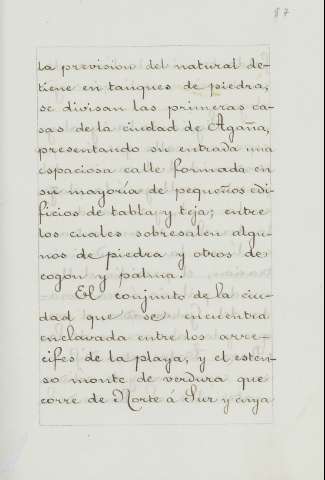 87
la prevision del natural de-
tiene en tanques de piedra,
se divisan las primeras ca-
sas de la ciudad de Agaña,
presentando su entrada una
espaciosa calle formada en
su mayoría de pequeños edi-
ficios de tabla y teja; entre
los cuales sobresalen algu-
nos de piedra y otros de
cogon y palma.
El conjunto de la ciu-
dad que se encuentra
enclavada entre los arre-
cifes de la playa, y el esten-
so monte de verdura que
corre de Norte á Sur y cuya